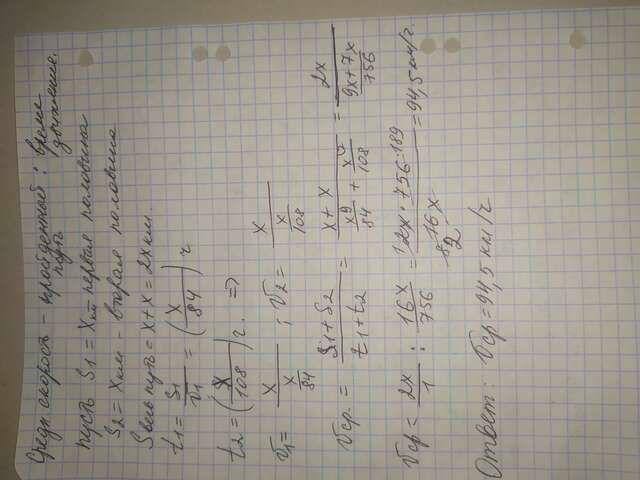 Средн скорость - пройденный путь : время движения.
пусть S1 = X км первая половина
S2 = X км - вторая половина
S весь путь = x + x = 2x км.
t1 = S1/V1 = (x/84) ч
t2 = (x/108) ч. =>
V1 = x / (x/84) ; V2 = x / (x/108)
Vср. = (S1 + S2)/(t1 + t2) = (x + x)/(x⁹/84 + x⁷/108) = 2x/((9x + 7x)/756)
Vср = 2x/1 : 16x/756 = 2x · 756 189 / 16x 8 2 = 94,5 км/ч.
Ответ: Vср = 94,5 км/ч